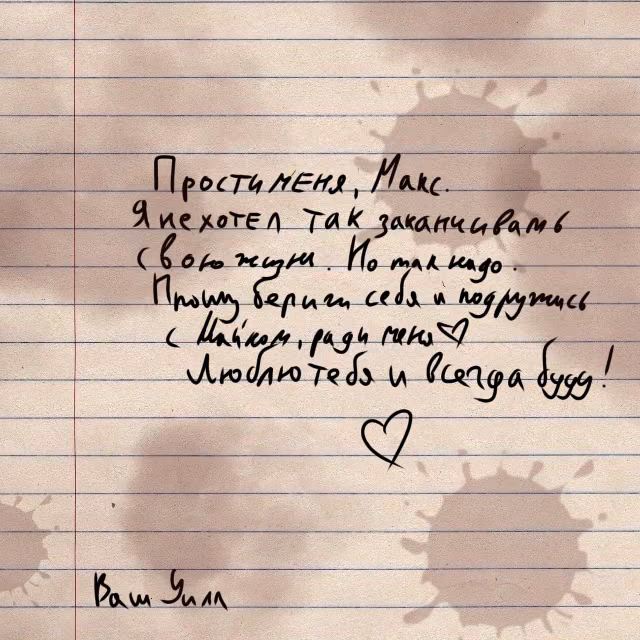 Прости меня, Макс.
Я не хотел так заканчивать
свою жизнь. Но так надо.
Прошу береги себя и подружись
с Майком, ради меня♡
Люблю тебя и всегда буду!
♡
Ваш Уилл